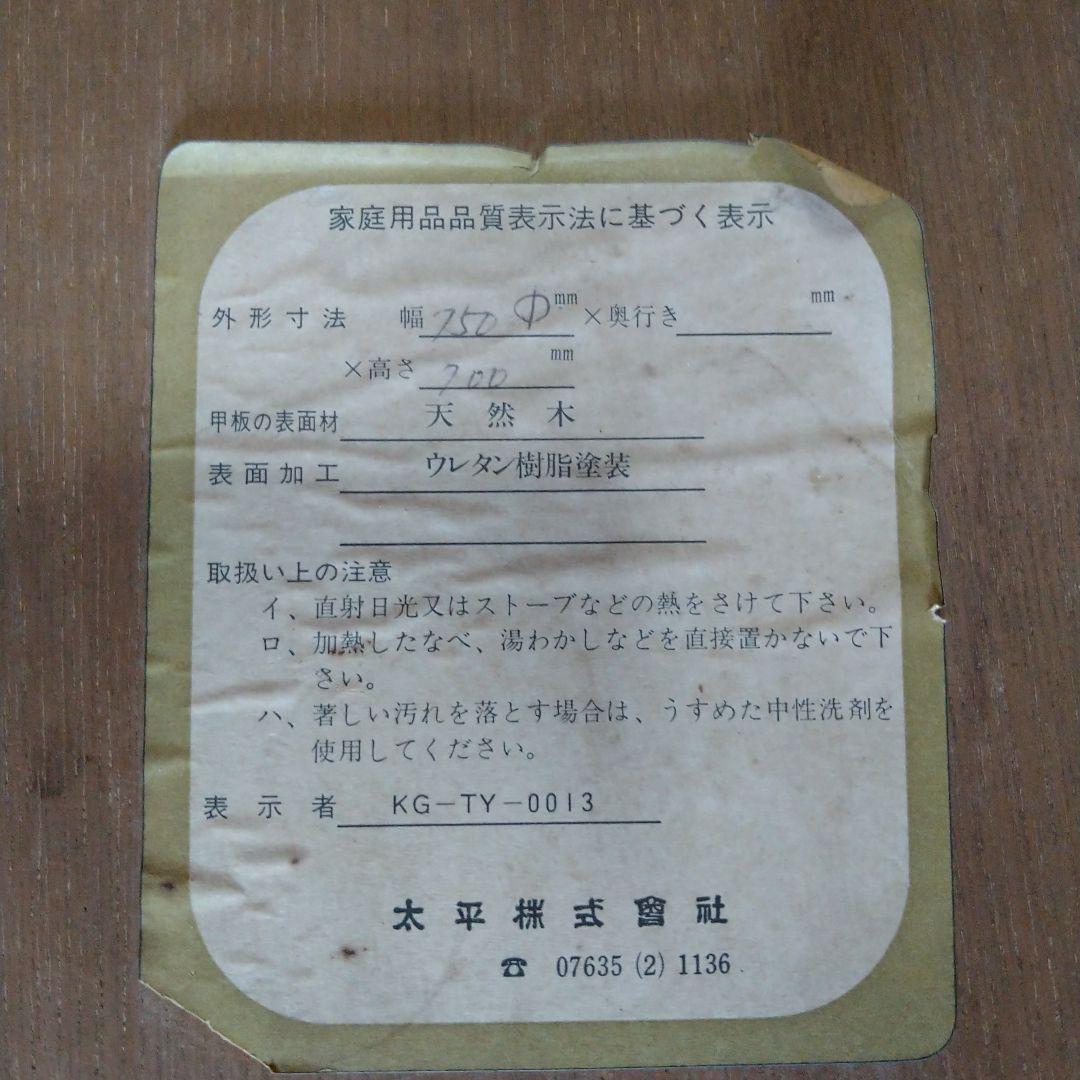 家庭用品品質表示法に基づく表示
外形寸法 幅 750 Φ mm ×奥行き mm
×高さ 700 mm
甲板の表面材 天然木
表面加工 ウレタン樹脂塗装
取扱い上の注意
イ、直射日光又はストーブなどの熱をさけて下さい。
ロ、加熱したなべ、湯わかしなどを直接置かないで下
さい。
ハ、著しい汚れを落とす場合は、うすめた中性洗剤を
使用してください。
表示者 KG-TY-0013
太平株式會社
☎ 07635 (2) 1136